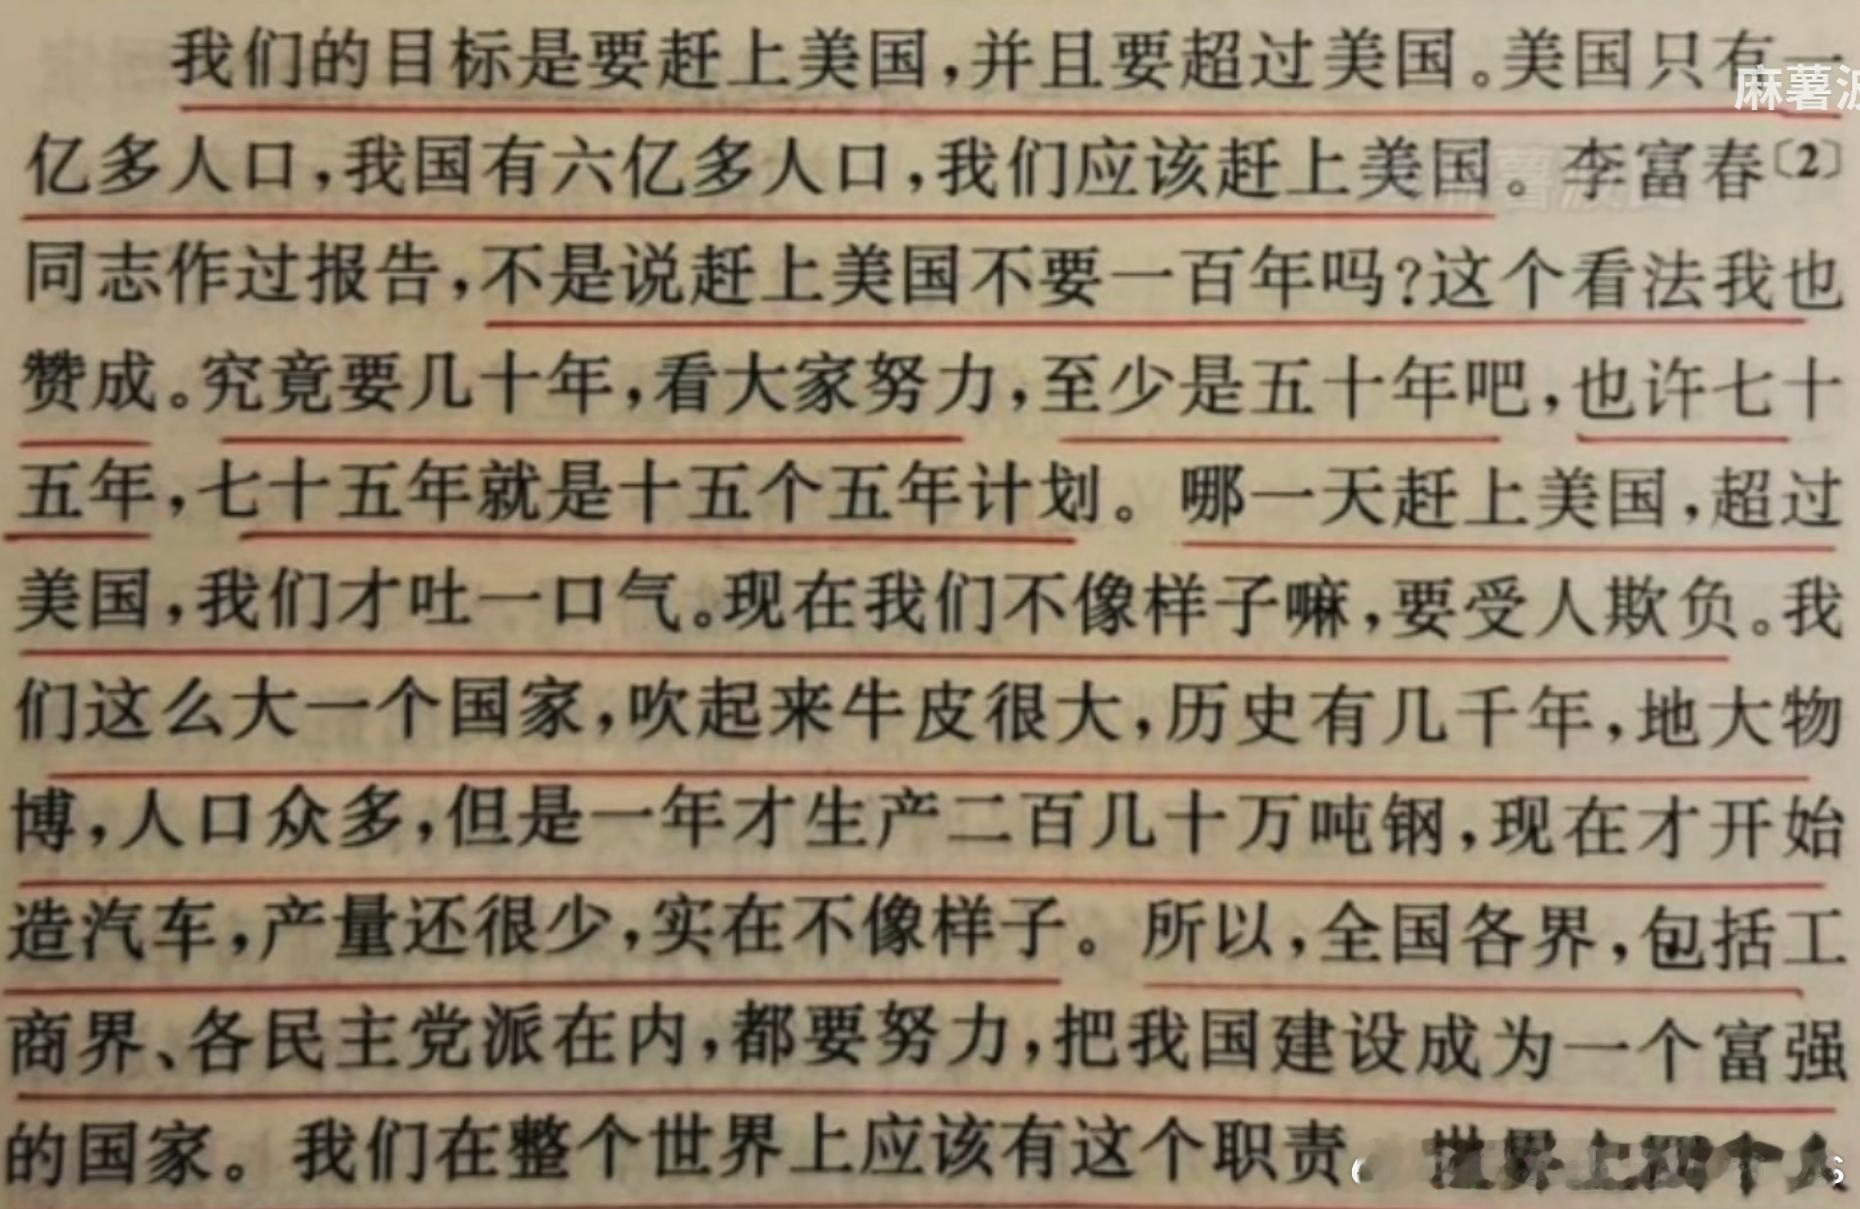 我们的目标是要赶上美国,并且要超过美国。美国只有一
麻薯波
亿多人口,我国有六亿多人口,我们应该赶上美国。李富春〔2〕
同志作过报告,不是说赶上美国不要一百年吗?这个看法我也
赞成。究竟要几十年,看大家努力,至少是五十年吧,也许七十
五年,七十五年就是十五个五年计划。哪一天赶上美国,超过
美国,我们才吐一口气。现在我们不像样子嘛,要受人欺负。我
们这么大一个国家,吹起来牛皮很大,历史有几千年,地大物
博,人口众多,但是一年才生产二百几十万吨钢,现在才开始
造汽车,产量还很少,实在不像样子。所以,全国各界,包括工
商界、各民主党派在内,都要努力,把我国建设成为一个富强
的国家。我们在整个世界上应该有这个职责